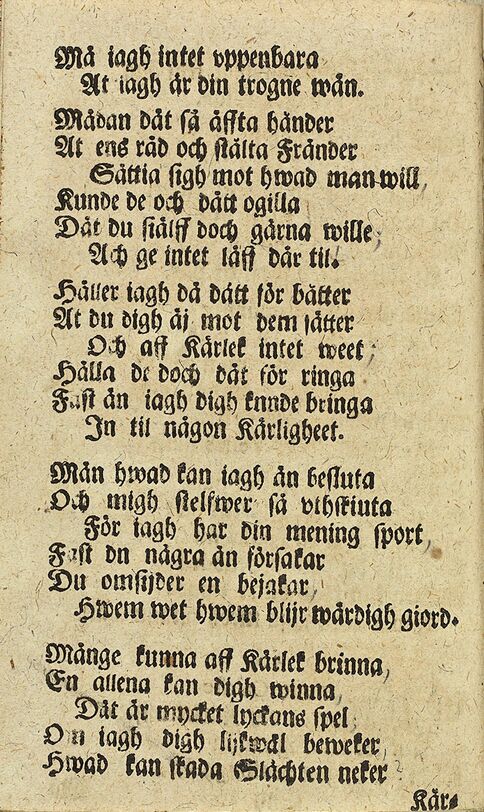 Må iagh intet vppenbara
At iagh är din trogne wän.
Mädan dät så äffta händer
At ens råd och stälta Fränder
Sättia sigh mot hwad man will,
Kunde de och dätt ogilla
Dät du siälff doch gärna wille,
Ach ge intet läff där til.
Häller iagh då dätt för bätter
At du digh äj mot dem sätter
Och aff Kärlek intet weet,
Hålla de doch dät för ringa
Fast än iagh digh knnde bringa
In til någon Kärligheet.
Män hwad kan iagh än besluta
Och migh sielfwer så vthskiuta
För iagh har din mening sport,
Fast dn några än försakar
Du omsijder en bejakar,
Hwem wet hwem blijr wärdigh giord.
Månge kunna aff Kärlek brinna,
En allena kan digh winna,
Dät är mycket lyckans spel,
Om iagh digh lijkwäl beweker,
Hwad kan skada Slächten neker?
Kär-